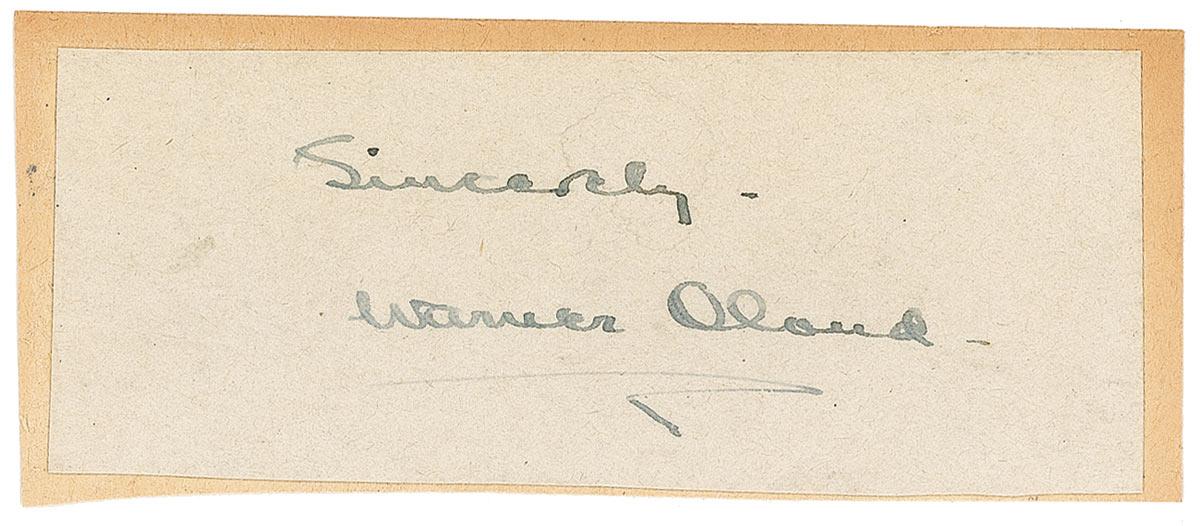 Sincerely -
Warner Oland -